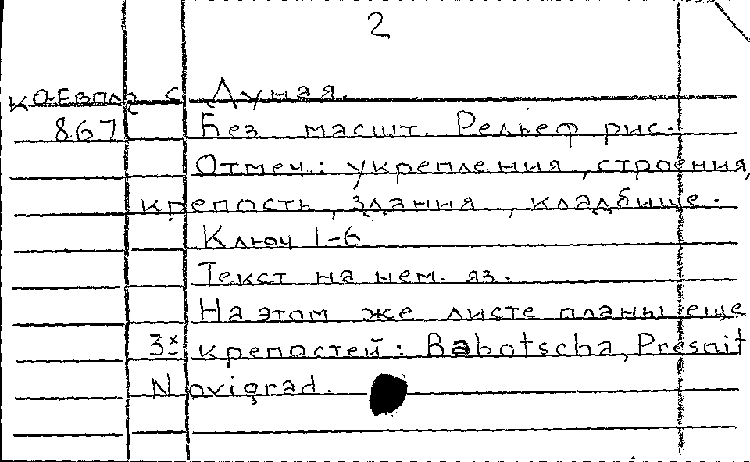 2
КОЕвпл2 с Дуная.
867 Без масшт. Рельеф рис.
Отмеч.: укрепления, строения,
крепость, здания, кладбище.
Ключ 1-6
Текст на нем. яз.
На этом же листе планы еще
3х крепостей: Babotscha, Presnit
Novigrad.